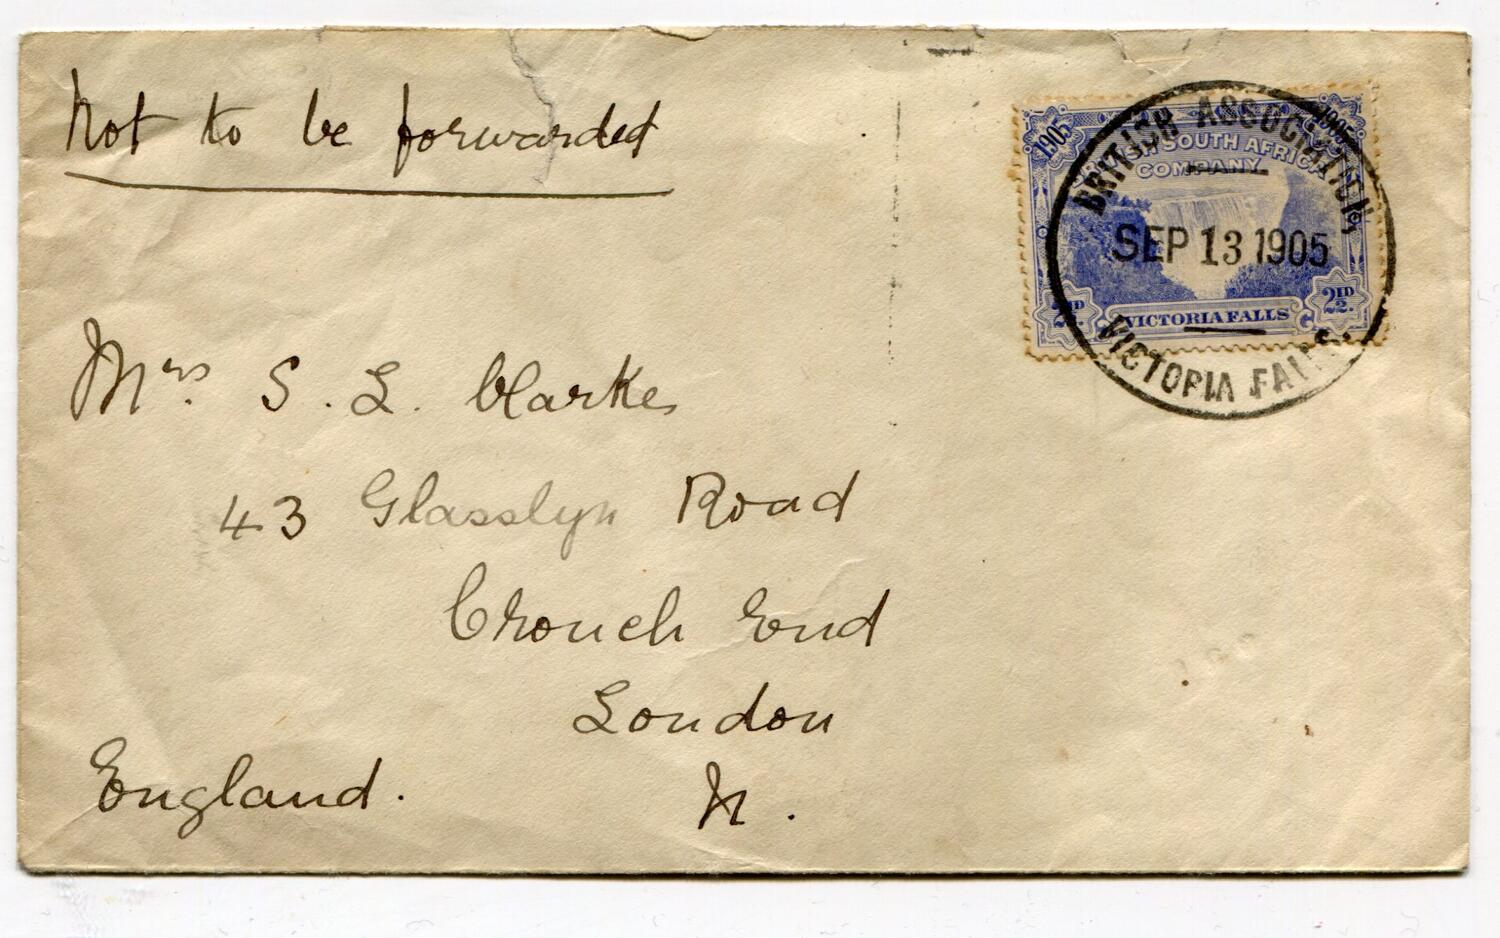 Not to be forwarded
1905
1905
BRITISH SOUTH AFRICA
COMPANY
2½D.
VICTORIA FALLS
2½D.
BRITISH ASSOCIATION,
SEP 13 1905
VICTORIA FALLS.
Mrs. S. L. Clarke,
43 Glasslyn Road
Crouch End
London
N.
England.